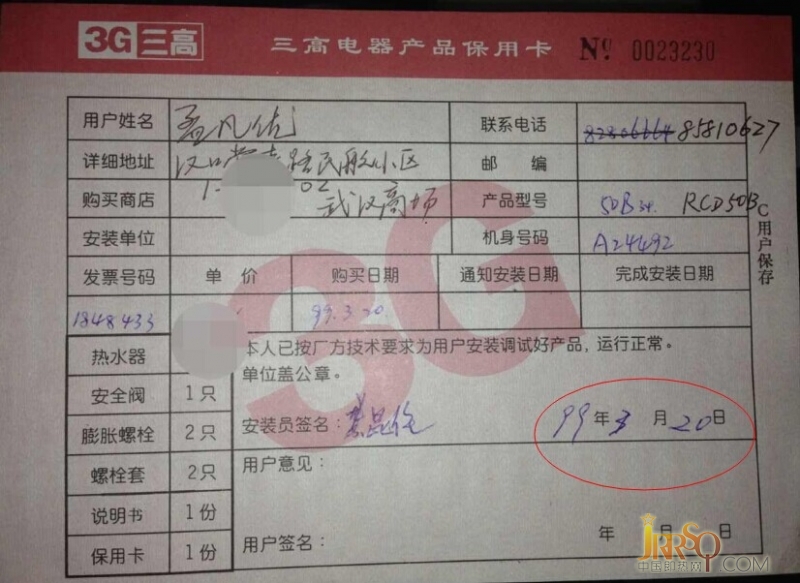 3G三高 三高电器产品保用卡 Nº 0023230
用户姓名 联系电话 82806664 85810627
详细地址 汉口 路民航小区 邮 编
1 02
购买商店 武汉商场 产品型号 50B RCD50B
安装单位 机身号码 A24492
C用户保存
发票号码 单 价 购买日期 通知安装日期 完成安装日期
1848433 99.3.20
3G
热水器 本人已按厂方技术要求为用户安装调试好产品，运行正常。
单位盖公章。
安全阀 1只
安装员签名： 99年3月20日
膨胀螺栓 2只
用户意见：
螺栓套 2只
说明书 1份
用户签名： 年 月 日
保用卡 1份
JRRSQ.COM
中国即热网